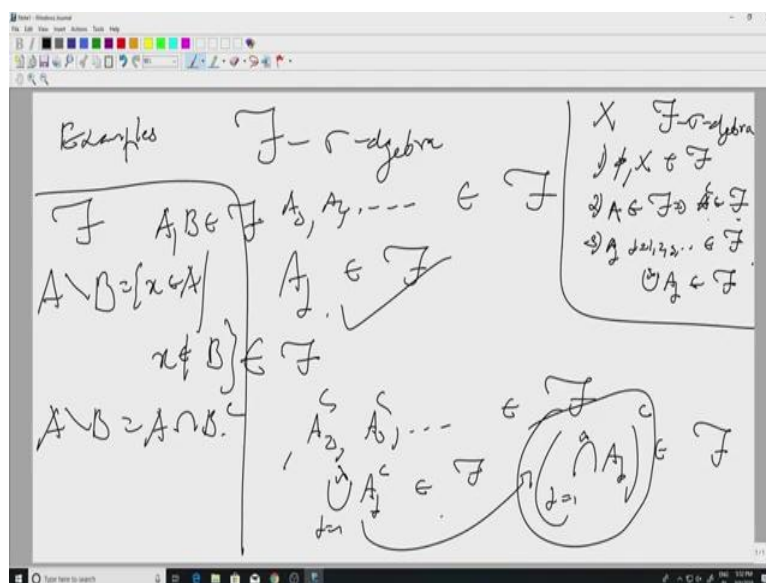 Note1 - Windows Journal
File Edit View Insert Actions Tools Help
Examples
ℱ - σ-algebra
ℱ A, B ∈ ℱ
A \ B = {x ∈ A |
x ∉ B} ∈ ℱ
A \ B = A ∩ B^c
∈ ℱ
A_j ∈ ℱ
∈ ℱ
⋃_{j=1} A_j^c ∈ ℱ
(⋂_{j=1} A_j)^c ∈ ℱ
X ℱ-σ-algebra
1) φ, X ∈ ℱ
2) A ∈ ℱ ⇒ A^c ∈ ℱ
3) A_j j=1,2,3,.. ∈ ℱ
⋃ A_j ∈ ℱ
1/1
Type here to search
ENG